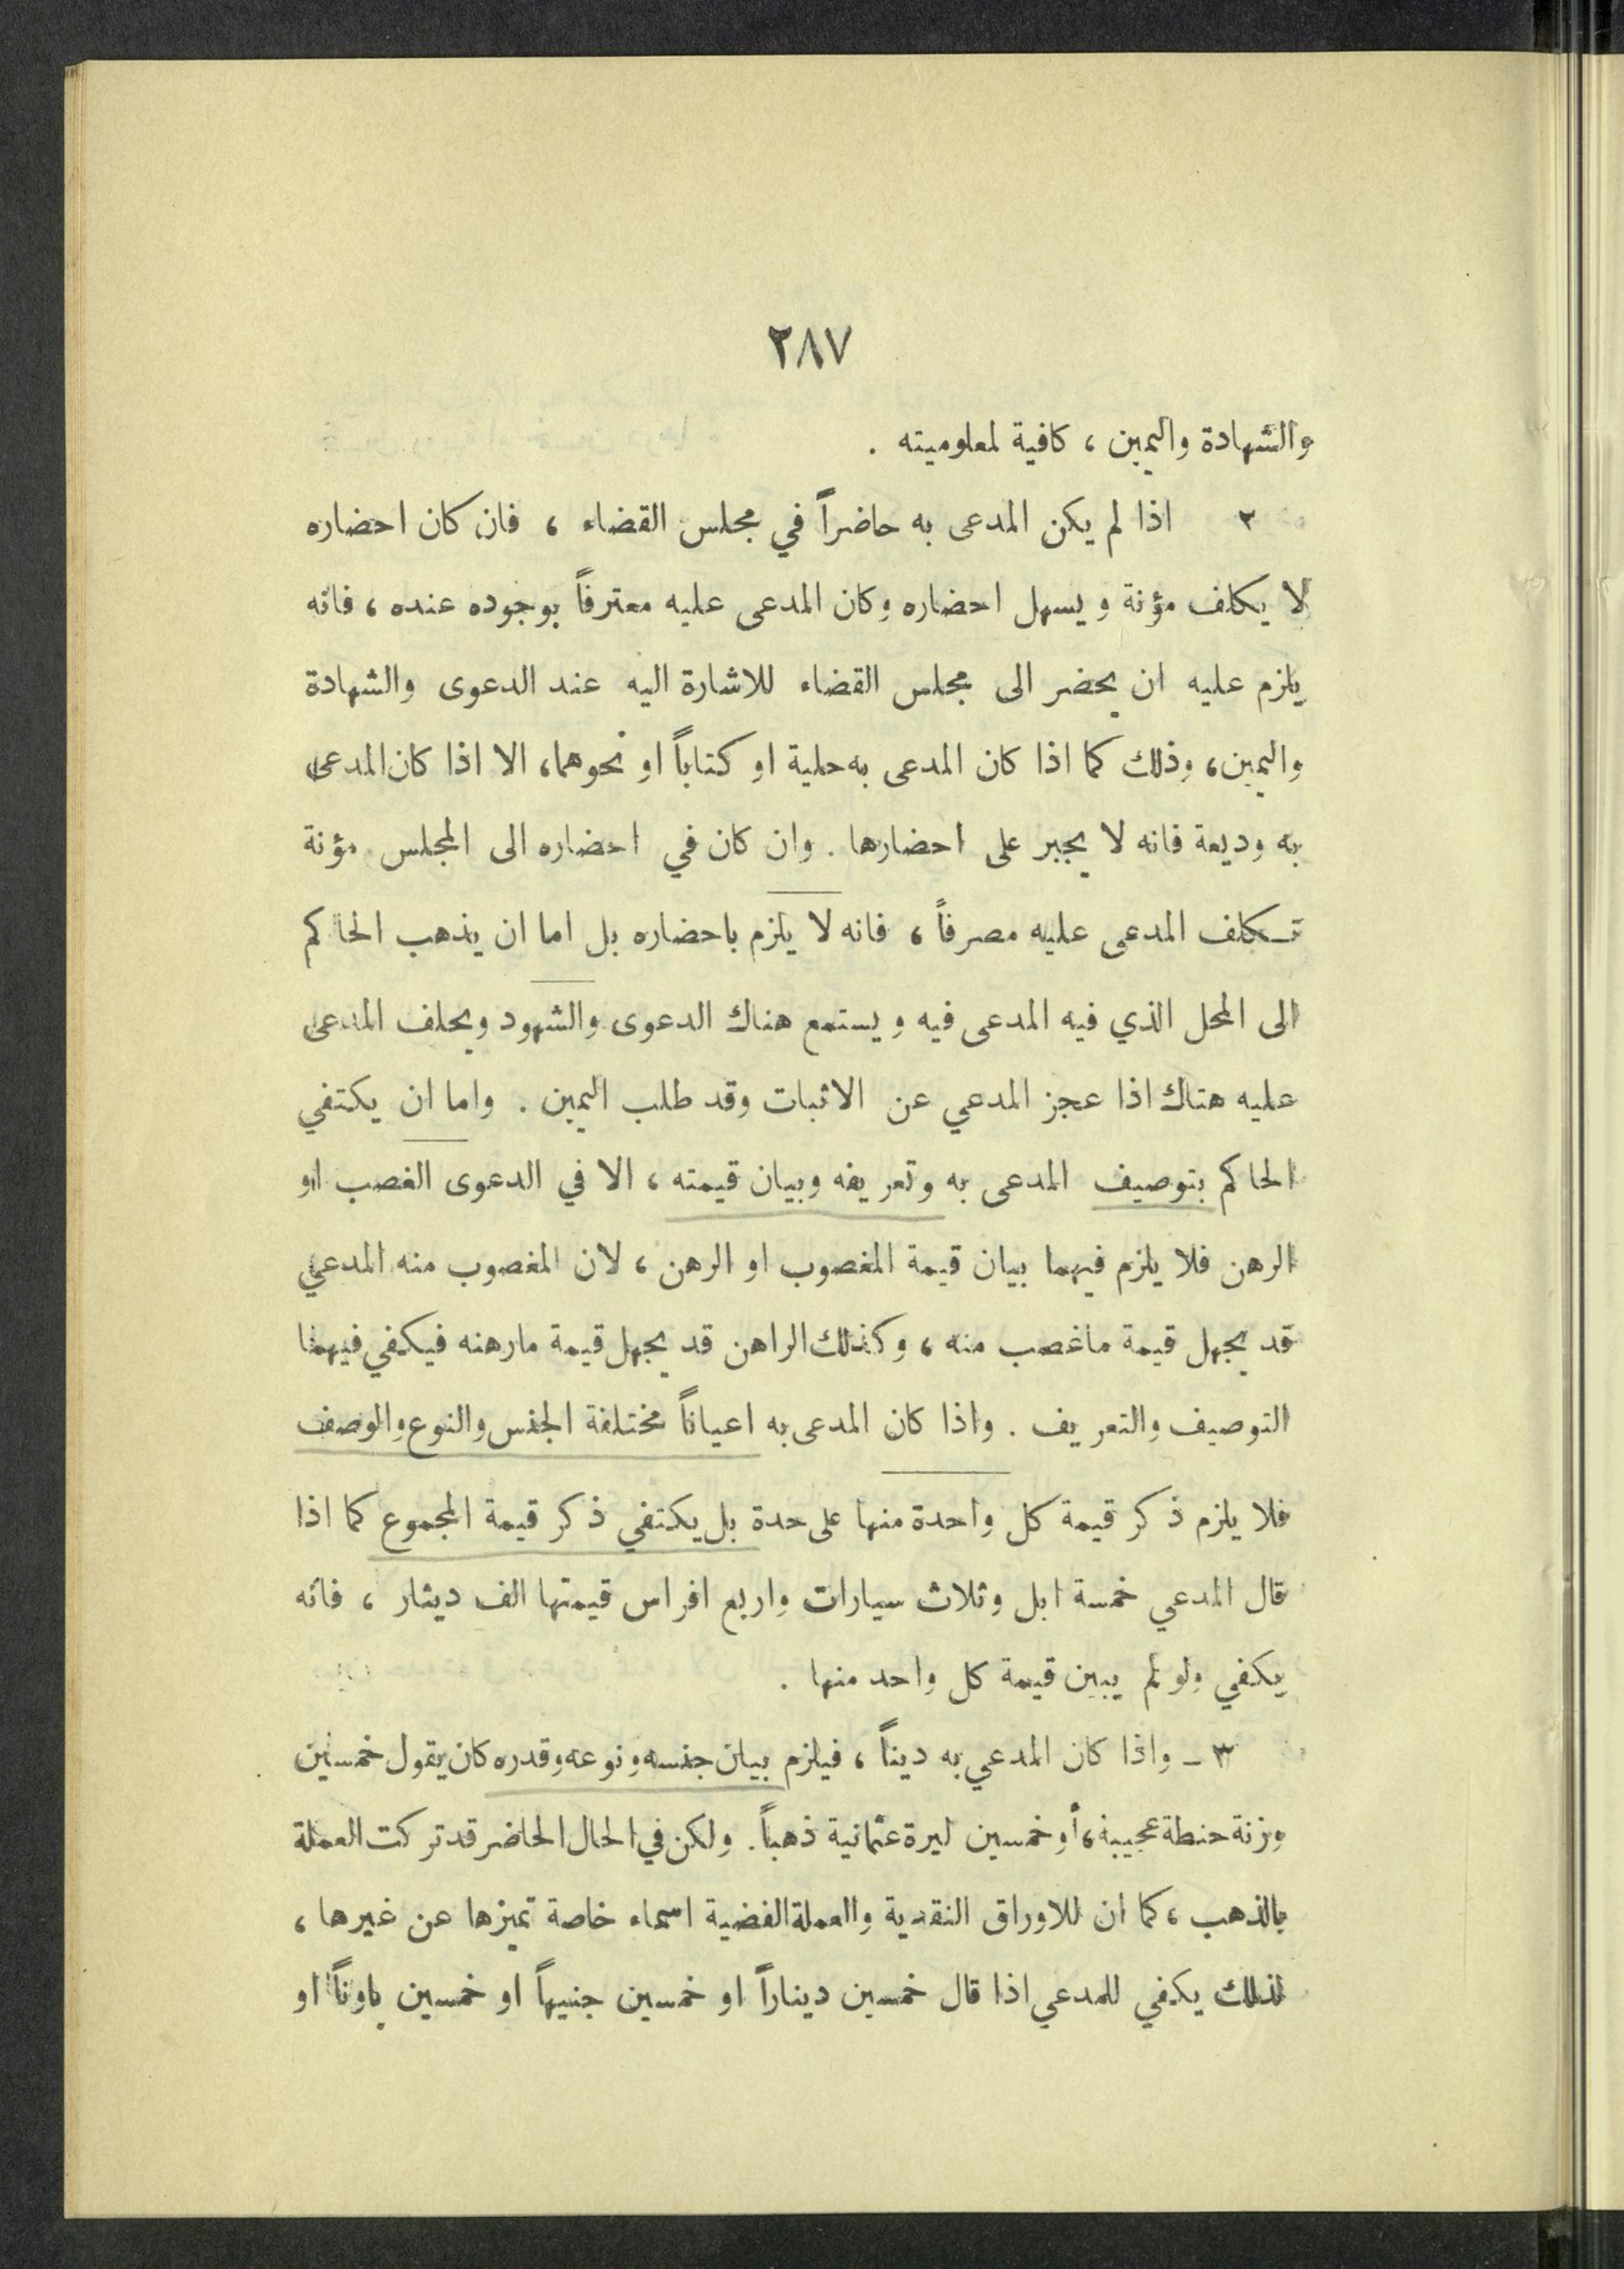 ٢٨٧
والشهادة واليمين ، كافية لمعلوميته .
٢ اذا لم يكن المدعى به حاضراً في مجلس القضاء ، فان كان احضاره
لا يكلف مؤنة ويسهل احضاره وكان المدعى عليه معترفاً بوجوده عنده ، فانه
يلزم عليه ان يحضر الى مجلس القضاء للاشارة اليه عند الدعوى والشهادة
واليمين ، وذلك كما اذا كان المدعى به حلية او كتاباً او نحوهما ، الا اذا كان المدعى
به وديعة فانه لا يجبر على احضارها . وان كان في احضاره الى المجلس مؤنة
تكلف المدعى عليه مصرفاً ، فانه لا يلزم باحضاره بل اما ان يذهب الحاكم
الى المحل الذي فيه المدعى فيه ويستمع هناك الدعوى والشهود ويحلف المدعى
عليه هناك اذا عجز المدعي عن الاثبات وقد طلب اليمين . واما ان يكتفي
الحاكم بتوصيف المدعى به وتعريفه وبيان قيمته ، الا في الدعوى الغصب او
الرهن فلا يلزم فيهما بيان قيمة المغصوب او الرهن ، لان المغصوب منه المدعي
قد يجهل قيمة ماغصب منه ، وكذلك الراهن قد يجهل قيمة مارهنه فيكفي فيهما
التوصيف والتعريف . واذا كان المدعى به اعياناً مختلفة الجنس والنوع والوصف
فلا يلزم ذكر قيمة كل واحدة منها على حدة بل يكتفي ذكر قيمة المجموع كما اذا
قال المدعي خمسة ابل وثلاث سيارات واربع افراس قيمتها الف دينار ، فانه
يكفي ولو لم يبين قيمة كل واحد منها .
٣ ـ واذا كان المدعي به ديناً ، فيلزم بيان جنسه ونوعه وقدره كان يقول خمسين
وزنة حنطة عجيبة ، أو خمسين ليرة عثمانية ذهباً . ولكن في الحال الحاضر قد تركت العملة
بالذهب ، كما ان للاوراق النقدية والعملة الفضية اسماء خاصة تميزها عن غيرها ،
لذلك يكفي للمدعي اذا قال خمسين ديناراً او خمسين جنيهاً او خمسين باوناً او